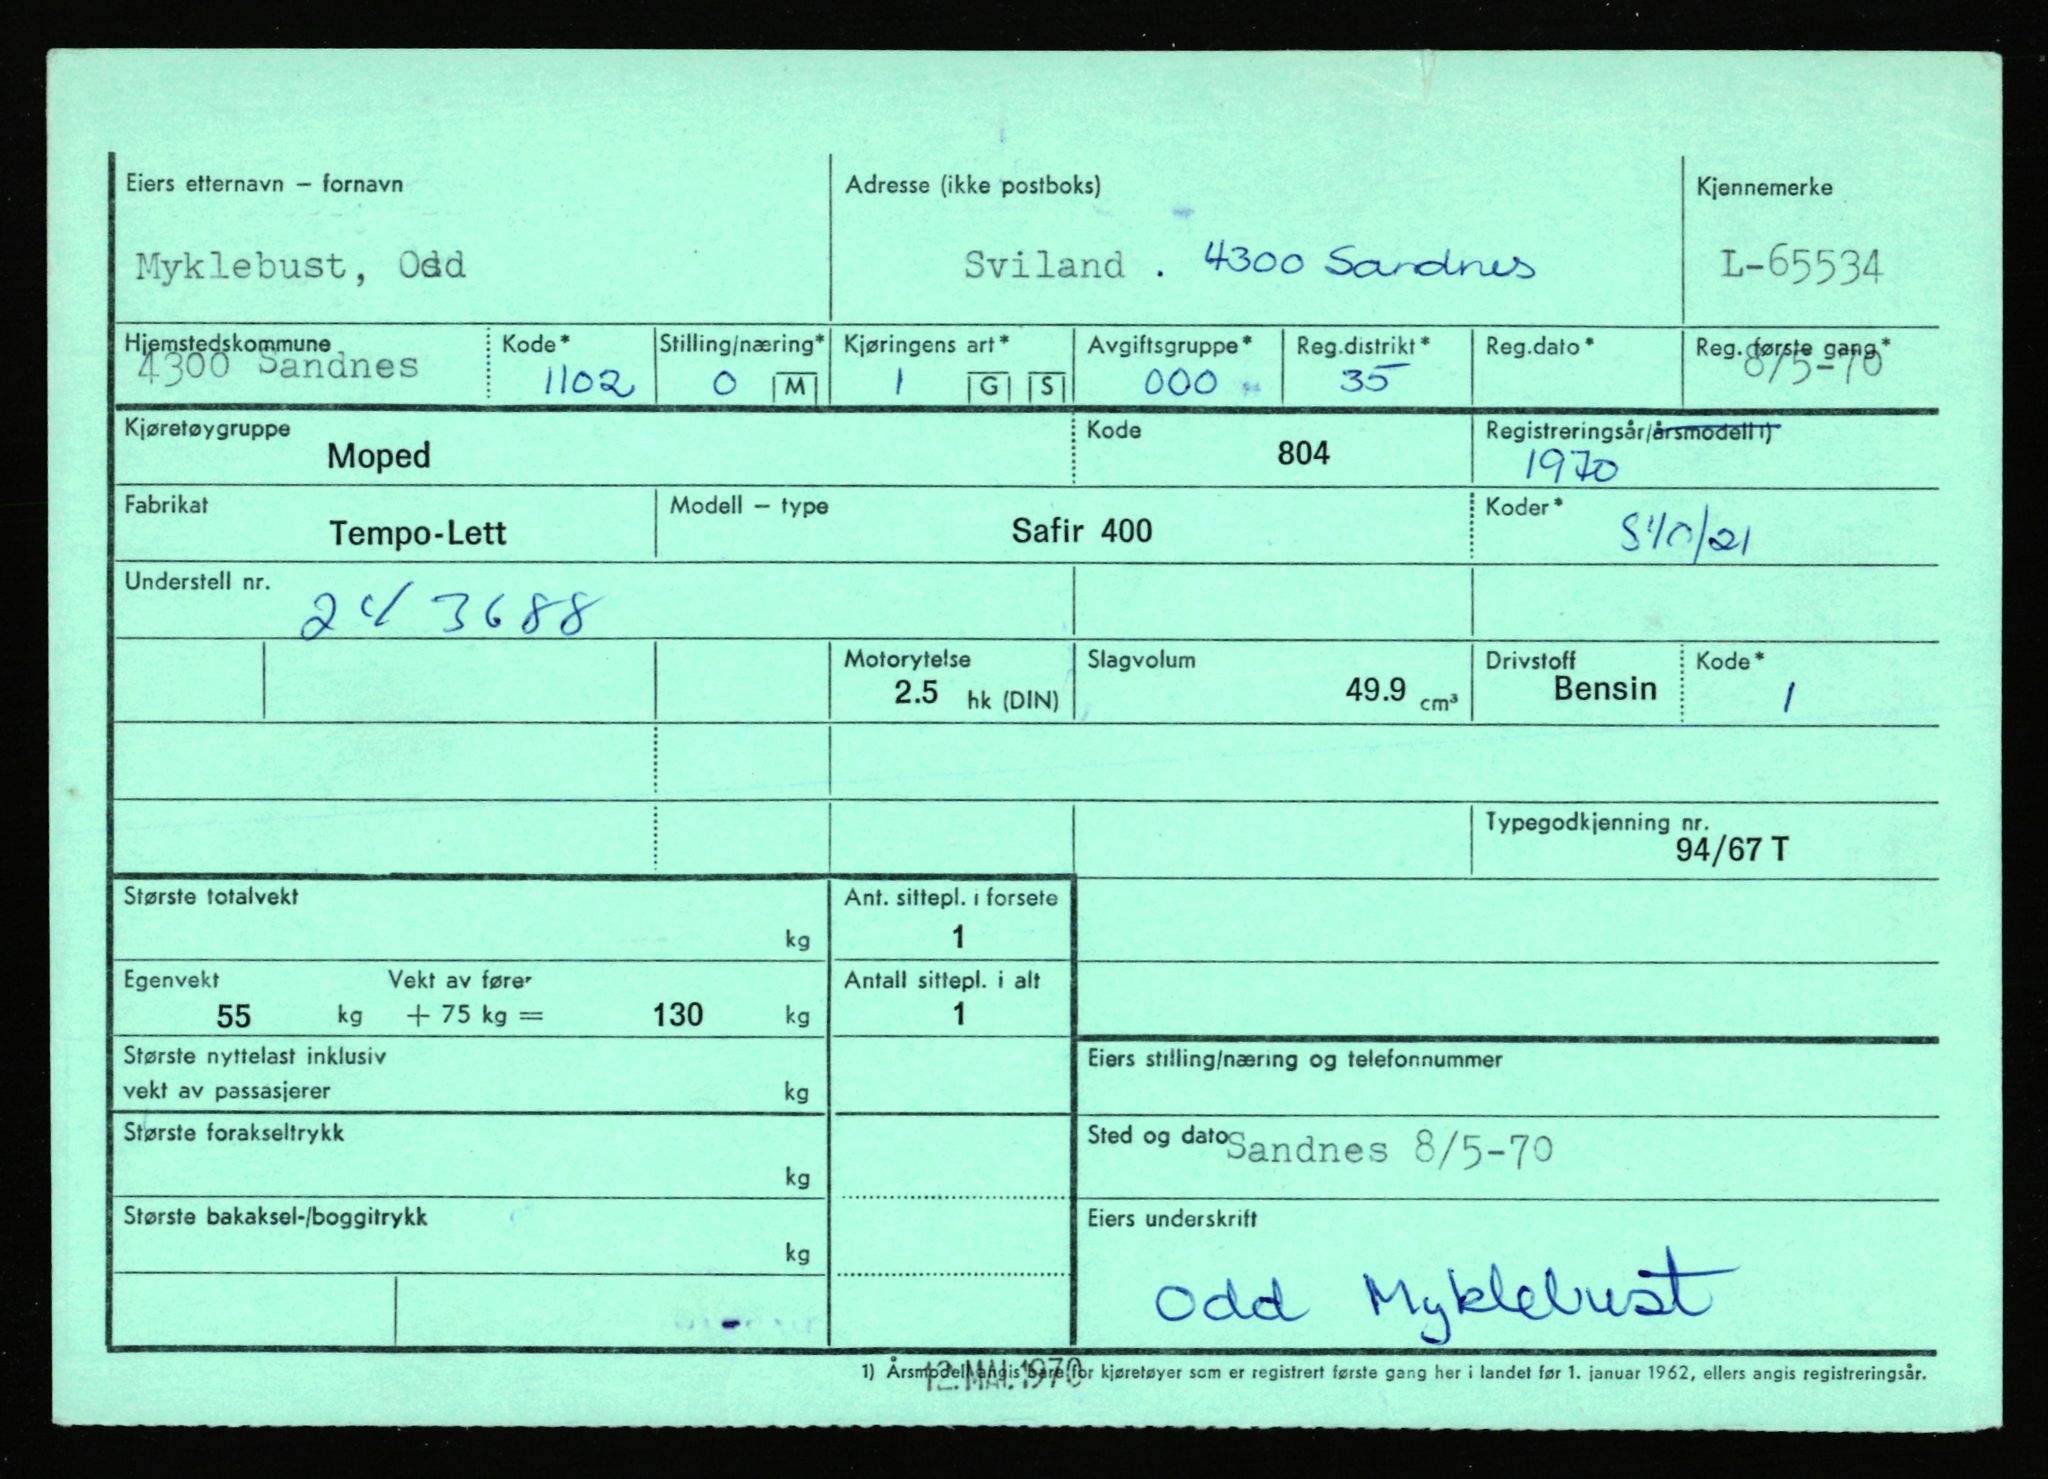 Eiers etternavn – fornavn
Myklebust, Odd
Adresse (ikke postboks)
Sviland . 4300 Sandnes
Kjennemerke
L-65534
Hjemstedskommune
4300 Sandnes
Kode*
1102
Stilling/næring*
0 M
Kjøringens art*
1 G S
Avgiftsgruppe*
000
Reg.distrikt*
35
Reg.dato*
Reg. første gang*
8/5-70
Kjøretøygruppe
Moped
Kode
804
Registreringsår/årsmodell 1)
1970
Fabrikat
Tempo-Lett
Modell – type
Safir 400
Koder*
/21
Understell nr.
243688
Motorytelse
2.5 hk (DIN)
Slagvolum
49.9 cm³
Drivstoff
Bensin
Kode*
1
Typegodkjenning nr.
94/67 T
Største totalvekt
kg
Ant. sittepl. i forsete
1
Egenvekt Vekt av fører
55 kg + 75 kg = 130 kg
Antall sittepl. i alt
1
Største nyttelast inklusiv
vekt av passasjerer kg
Eiers stilling/næring og telefonnummer
Største forakseltrykk
kg
Sted og dato Sandnes 8/5-70
Største bakaksel-/boggitrykk
kg
Eiers underskrift
Odd Myklebust
1) Årsmodell angis bare for kjøretøyer som er registrert første gang her i landet før 1. januar 1962, ellers angis registreringsår.
12. MAI. 1970